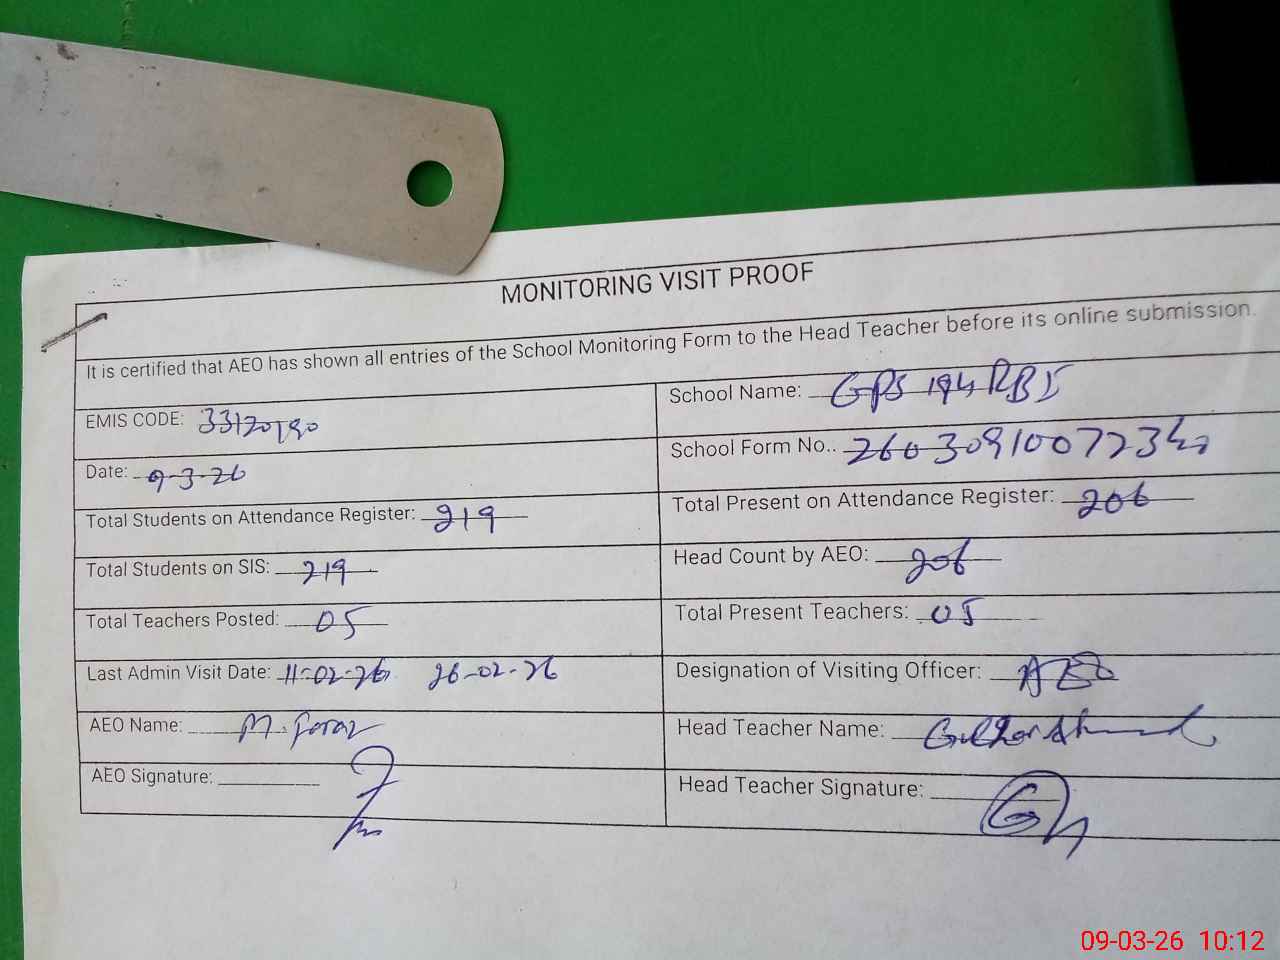 MONITORING VISIT PROOF
It is certified that AEO has shown all entries of the School Monitoring Form to the Head Teacher before its online submission.
EMIS CODE: 33120190
School Name: GPS 194 RB I
Date: 9-3-26
School Form No..
Total Students on Attendance Register: 219
Total Present on Attendance Register: 206
Total Students on SIS: 219
Head Count by AEO: 206
Total Teachers Posted: 05
Total Present Teachers: 05
Last Admin Visit Date: 11-02-26 26-02-26
Designation of Visiting Officer: AEO
AEO Name: M. Faraz
Head Teacher Name:
AEO Signature:
Head Teacher Signature:
09-03-26 10:12